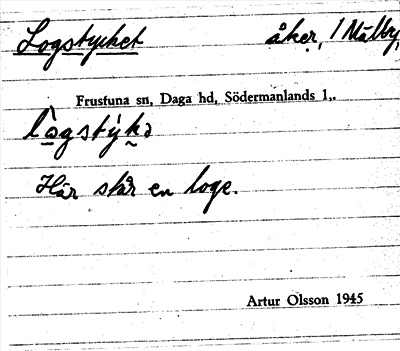 Logstycket åker, 1 Målby,
Frustuna sn, Daga hd, Södermanlands l.
Här står en loge.
Artur Olsson 1945